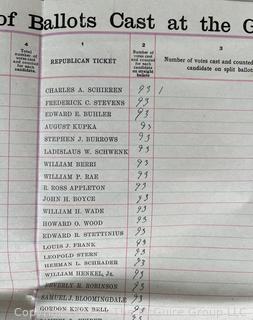 of Ballots Cast at the G
4 1 2 3
Total number of votes cast and counted for each candidate.
REPUBLICAN TICKET
Number of votes cast and counted for each candidate on straight ballots
Number of votes cast and counted candidate on split ballot
CHARLES A. SCHIEREN 93 1
FREDERICK C. STEVENS 93
EDWARD E. BUHLER 93
AUGUST KUPKA 93
STEPHEN J. BURROWS 93
LADISLAUS W. SCHWENK 93
WILLIAM BERRI 93
WILLIAM P. RAE 93
R. ROSS APPLETON 93
JOHN H. BOYCE 93
WILLIAM H. WADE 93
HOWARD O. WOOD 93
EDWARD R. STETTINIUS 93
LOUIS J. FRANK 93
LEOPOLD STERN 93
HERMAN L. SCHRADER 93
WILLIAM HENKEL, Jr. 93
BEVERLY R. ROBINSON 93
SAMUEL J. BLOOMINGDALE 93
GORDON KNOX BELL 93
93